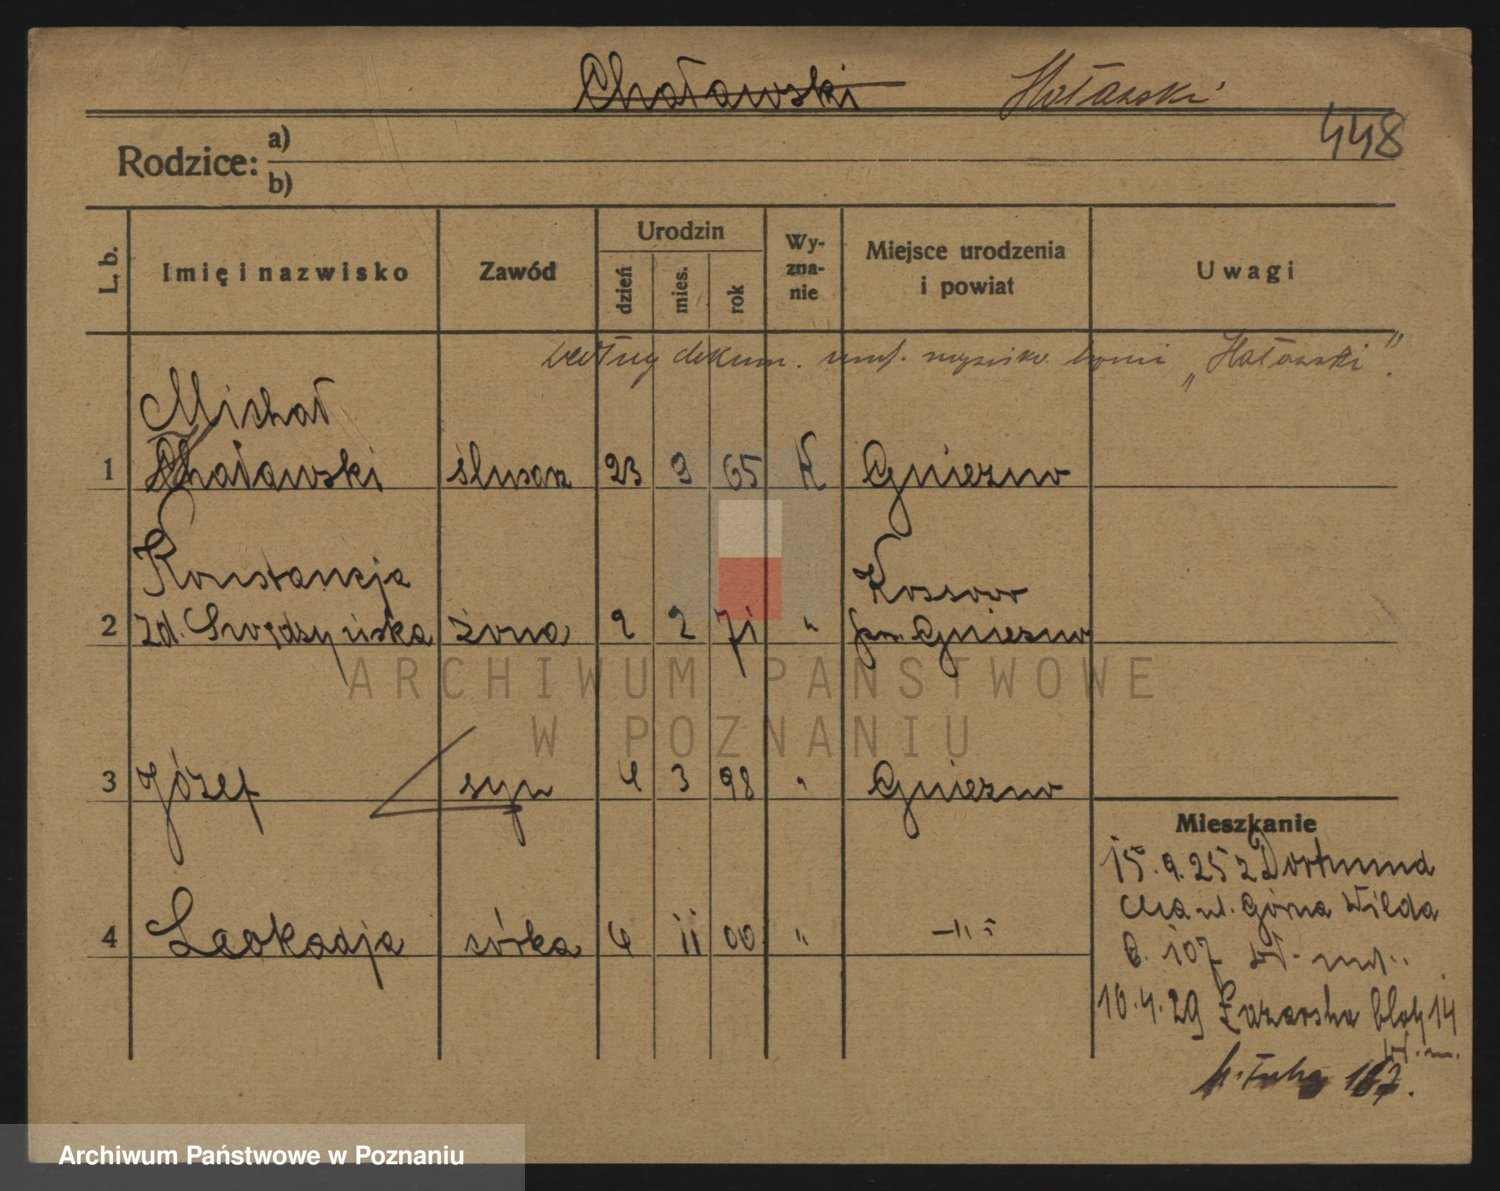 Chaławski Hoławski
448
Rodzice: a)
b)
L. b. Imię i nazwisko Zawód Urodzin dzień mies. rok Wy-zna-nie Miejsce urodzenia i powiat Uwagi
według dokum. brzmi „Hoławski”.
Michał
1 Chaławski ślusarz 23 9 65 K Gniezno
Konstancja Kossowo
2 zd. żona 2 2 71 " pow. Gniezno
3 Józef syn 4 3 98 " Gniezno
4 Leokadja córka 4 11 00 " -"-
Mieszkanie
15.9.25 z Dortmund
ul. Górna Wilda
107
10.4.29 Łazarska blok 14
ARCHIWUM PAŃSTWOWE
W POZNANIU
Archiwum Państwowe w Poznaniu